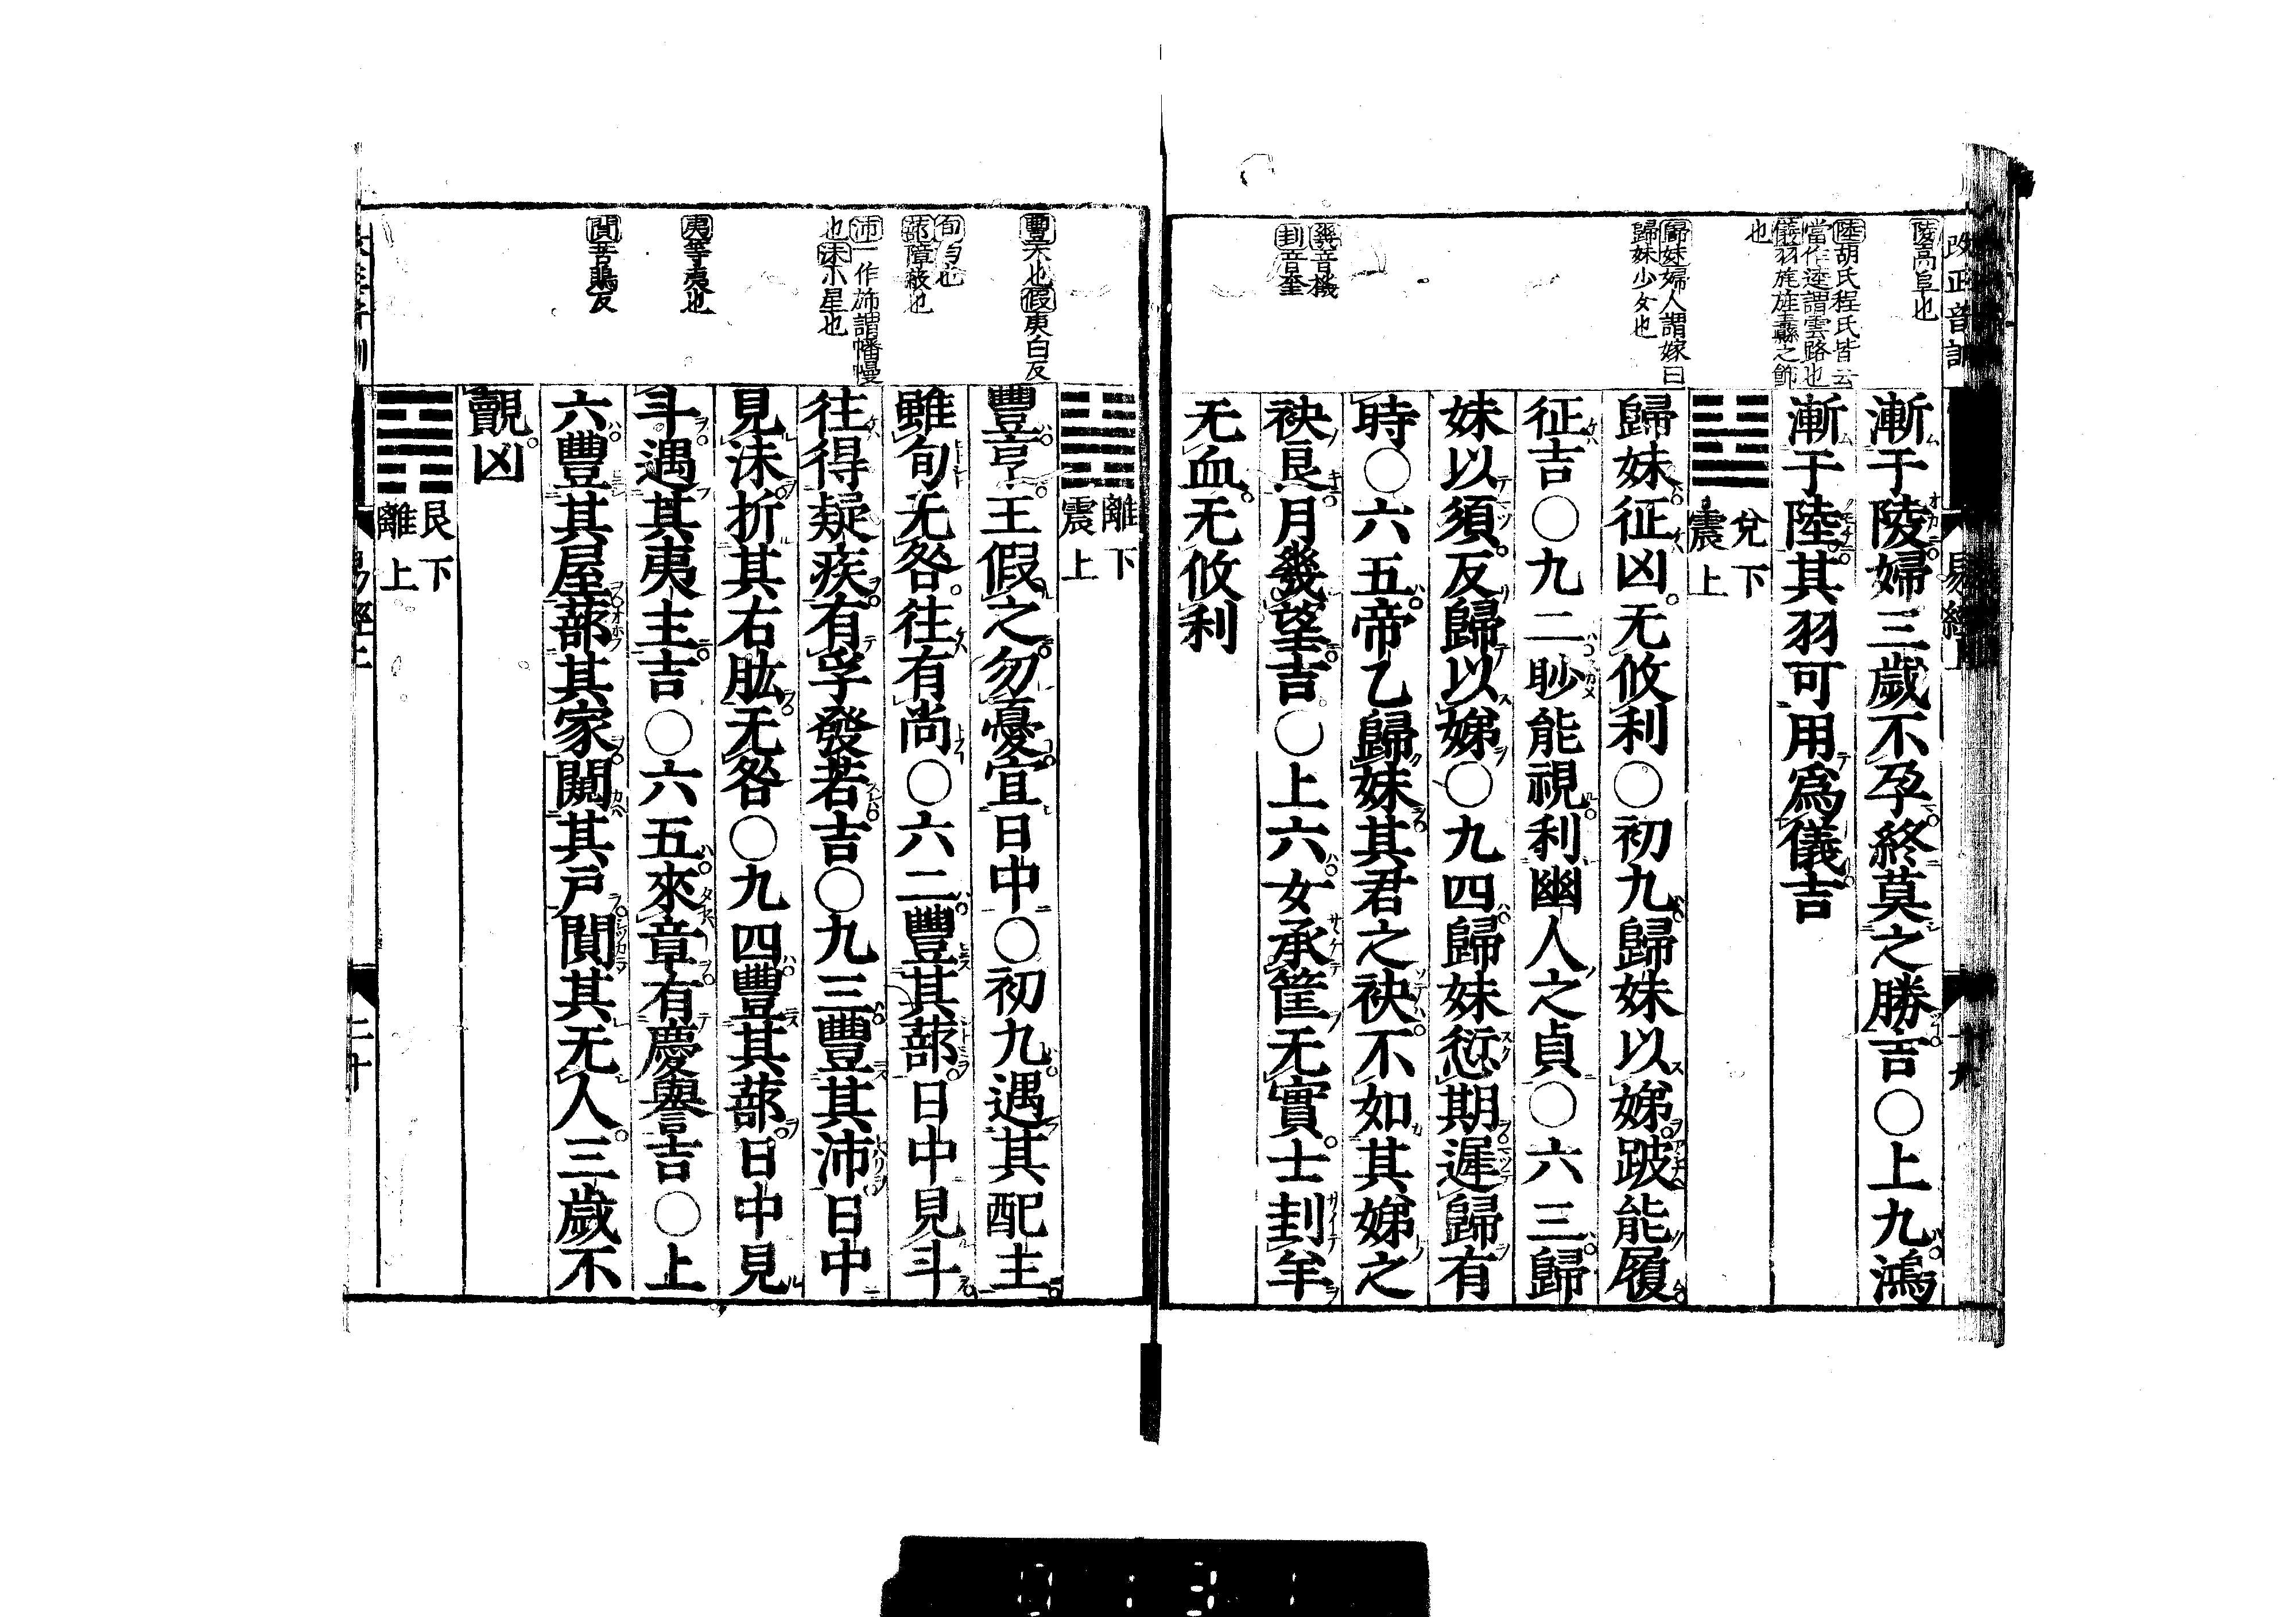 改正音訓
易經
陵高阜也
陸胡氏程氏皆云
當作逵謂雲路也
儀羽旄旌纛之飾
也
歸妹婦人謂嫁曰
歸妹少女也
幾音機
刲音奎
漸于陵婦三歲不孕終莫之勝吉〇上九鴻
漸于陸其羽可用爲儀吉
兌下
震上
歸妹征凶无攸利〇初九歸妹以娣跛能履
征吉〇九二眇能視利幽人之貞〇六三歸
妹以須反歸以娣〇九四歸妹愆期遲歸有
時〇六五帝乙歸妹其君之袂不如其娣之
袂良月幾望吉〇上六女承筐无實士刲羊
无血无攸利
豐大也假庚白反
旬均也
蔀障蔽也
沛一作旆謂幡幔
也沬小星也
夷等夷也
闃苦鵙反
離下
震上
豐亨王假之勿憂宜日中〇初九遇其配主
雖旬无咎往有尚〇六二豐其蔀日中見斗
往得疑疾有孚發若吉〇九三豐其沛日中
見沬折其右肱无咎〇九四豐其蔀日中見
斗遇其夷主吉〇六五來章有慶譽吉〇上
六豐其屋蔀其家闚其戸闃其无人三歲不
覿凶
艮下
離上
二十